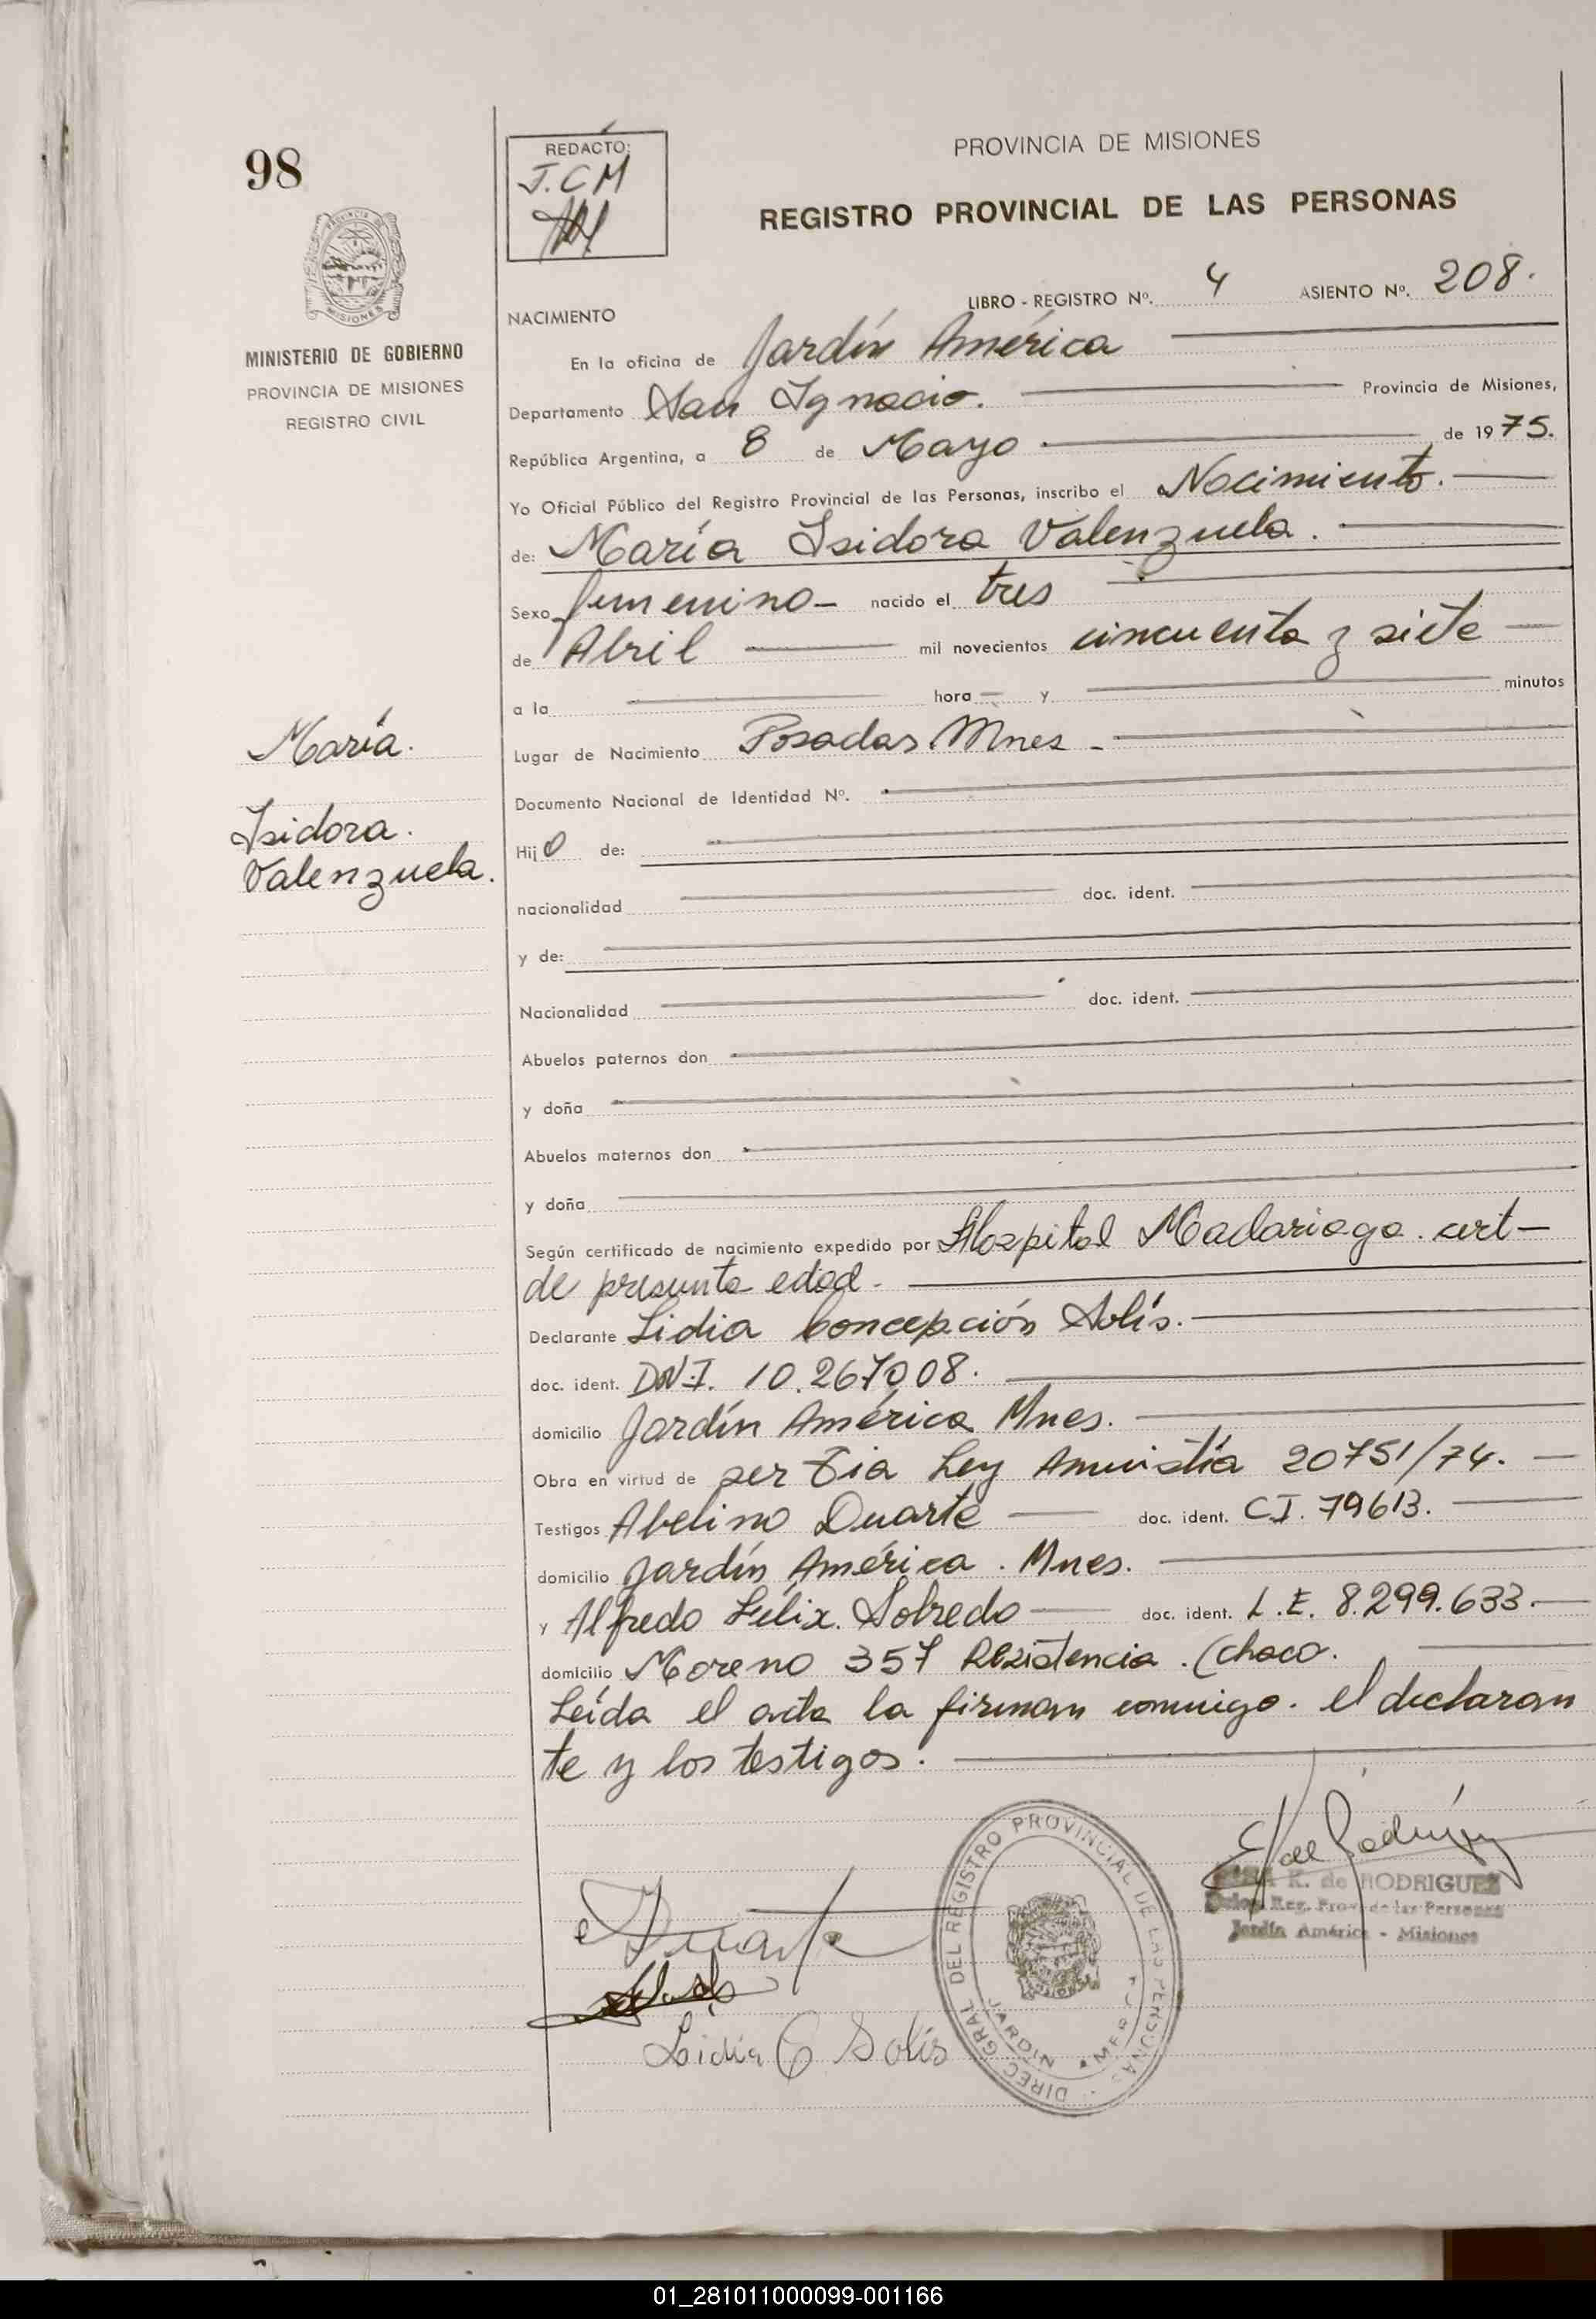 98
PROVINCIA DE MISIONES
MISIONES
MINISTERIO DE GOBIERNO
PROVINCIA DE MISIONES
REGISTRO CIVIL
REDACTO:
J.C M
PROVINCIA DE MISIONES
REGISTRO PROVINCIAL DE LAS PERSONAS
LIBRO - REGISTRO Nº. 4 ASIENTO Nº. 208.
NACIMIENTO
En la oficina de Jardín América
Departamento San Ignacio. Provincia de Misiones,
República Argentina, a 8 de Mayo de 1975.
Yo Oficial Público del Registro Provincial de las Personas, inscribo el Nacimiento.
de: María Isidora Valenzuela.
Sexo femenino - nacido el tres
de Abril mil novecientos cincuenta y siete
a la hora y minutos
Lugar de Nacimiento Posadas Mnes -
Documento Nacional de Identidad Nº.
Hijo de:
nacionalidad doc. ident.
y de:
Nacionalidad doc. ident.
Abuelos paternos don
y doña
Abuelos maternos don
y doña
Según certificado de nacimiento expedido por Hospital Madariaga. cert-
de presunta edad -
Declarante Lidia Concepción Solís.
doc. ident. DN.I. 10.267008.
domicilio Jardín América Mnes.
Obra en virtud de ser Tia Ley Amnistía 20751/74.
Testigos Abelino Duarte doc. ident. C.I. 79613.
domicilio Jardín América. Mnes.
y Alfredo Félix. Sobredo doc. ident. L.E. 8.299.633.
domicilio Moreno 357 Resistencia. (Chaco.
Leída el acta la firman conmigo. el declaran
te y los testigos.
María.
Isidora.
Valenzuela.
Duarte
Lidia C Solís
DIREC. GRAL DEL REGISTRO PROVINCIAL DE LAS PERSONAS
JARDIN AMERICA
K. de RODRIGUEZ
Reg. Prov. de las Personas
Jardín América - Misiones
01_281011000099-001166